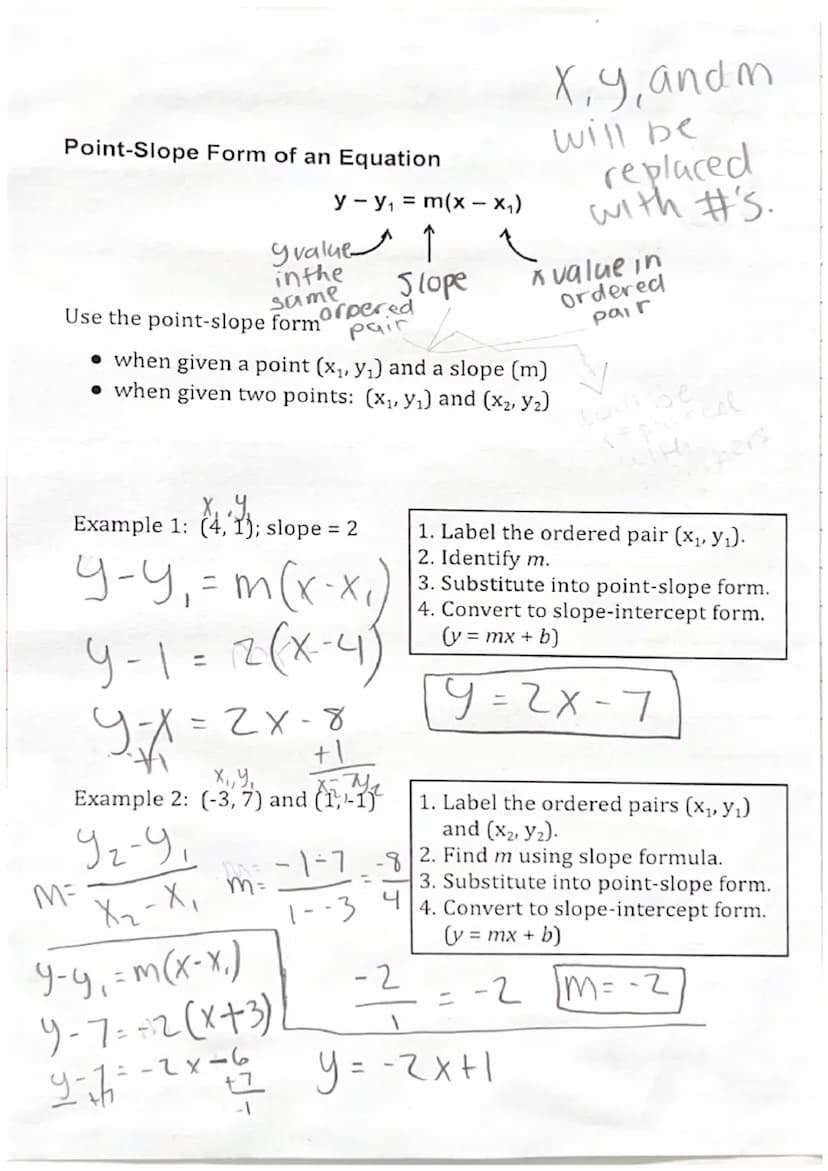 x, y, and m
will be
replaced
with #'s.
Point-Slope Form of an Equation
y – y₁ = m(x – x₁)
y value
in the
same
orpered
pair
Slope
x value in
ordered
pair
Use the point-slope form
• when given a point (x₁, y₁) and a slope (m)
• when given two points: (x₁, y₁) and (x₂, y₂)
will be
replaced
with
x₁, y₁
Example 1: (4, 1); slope = 2
1. Label the ordered pair (x₁, y₁).
2. Identify m.
3. Substitute into point-slope form.
4. Convert to slope-intercept form.
(y = mx + b)
y-y₁ = m(x-x₁)
y-1 = 2(x-4)
y-1 = 2x-8
+1 +1
-7
y = 2x-7
x₁, y₁ x₂ y₂
Example 2: (-3, 7) and (1, -1)
1. Label the ordered pairs (x₁, y₁)
and (x₂, y₂).
2. Find m using slope formula.
3. Substitute into point-slope form.
4. Convert to slope-intercept form.
(y = mx + b)
m= y₂-y₁ / x₂-x₁
m= -1-7 / 1--3 = -8 / 4
-2 / 1 = -2 m= -2
y-y₁=m(x-x₁)
y-7=-2(x+3)
y-7=-2x-6
+7 +7
-1
y = -2x+1